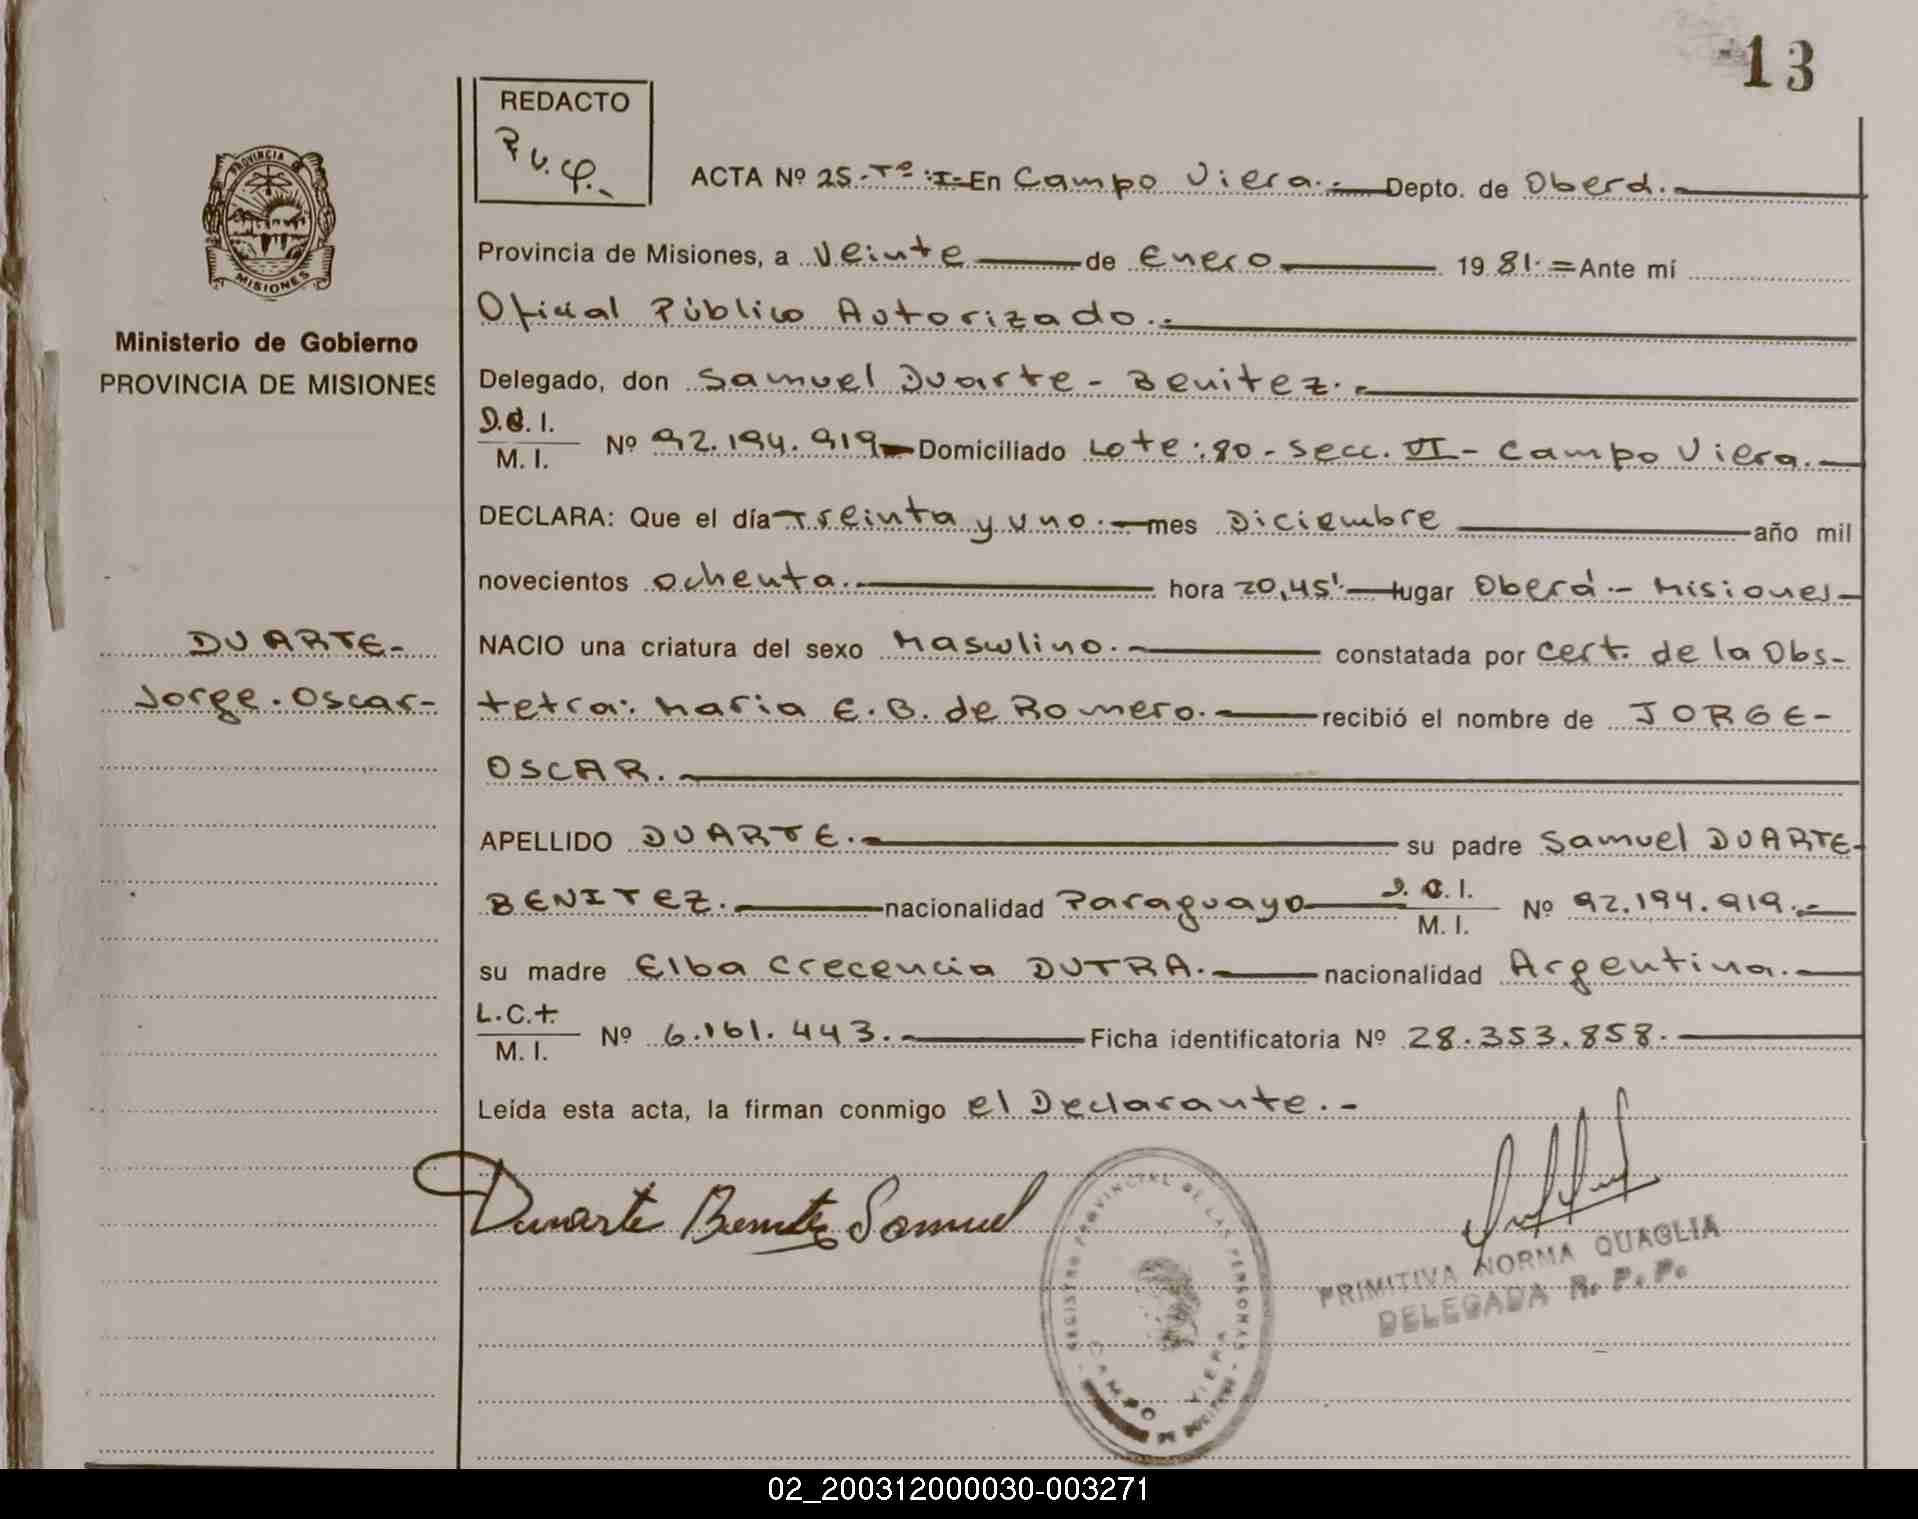 13
REDACTO
P.N.Q.-
PROVINCIA
MISIONES
Ministerio de Gobierno
PROVINCIA DE MISIONES
DUARTE-
Jorge. Oscar-
ACTA Nº 25-Tº:I- En Campo Viera.- Depto. de Oberá.-
Provincia de Misiones, a Veinte de Enero 1981.= Ante mí
Oficial Público Autorizado.-
Delegado, don Samuel Duarte - Benitez.-
D.C.I.
M. I. Nº 92.194.919- Domiciliado Lote: 80 - Secc. VI - Campo Viera.-
DECLARA: Que el día Treinta y uno.- mes Diciembre año mil
novecientos ochenta.- hora 20,45'- lugar Oberá.- Misiones-
NACIO una criatura del sexo Masculino.- constatada por cert. de la Obs-
tetra: Maria E. B. de Romero.- recibió el nombre de JORGE-
OSCAR.-
APELLIDO DUARTE.- su padre Samuel DUARTE-
BENITEZ.- nacionalidad Paraguayo D.C.I.
M. I. Nº 92.194.919.-
su madre Elba Crecencia DUTRA.- nacionalidad Argentina.-
L.C.+.
M. I. Nº 6.161.443.- Ficha identificatoria Nº 28.353.858.-
Leída esta acta, la firman conmigo el Declarante.-
Duarte Benitez Samuel
REGISTRO PROVINCIAL DE LAS PERSONAS
CAMPO VIERA
PRIMITIVA NORMA QUAGLIA
DELEGADA R. P. P.
02_200312000030-003271